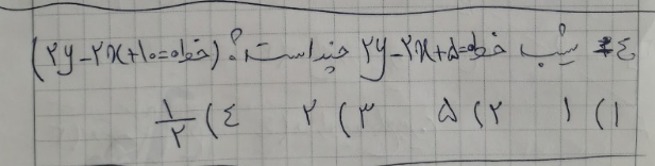 ٤- شیب خط ۲y-۲x+۵=۰ چند است؟ (خط ۲y-۲x+۱۰=۰)
۱) ۱ ۲) ۵ ۳) ۲ ٤) ۱/۲